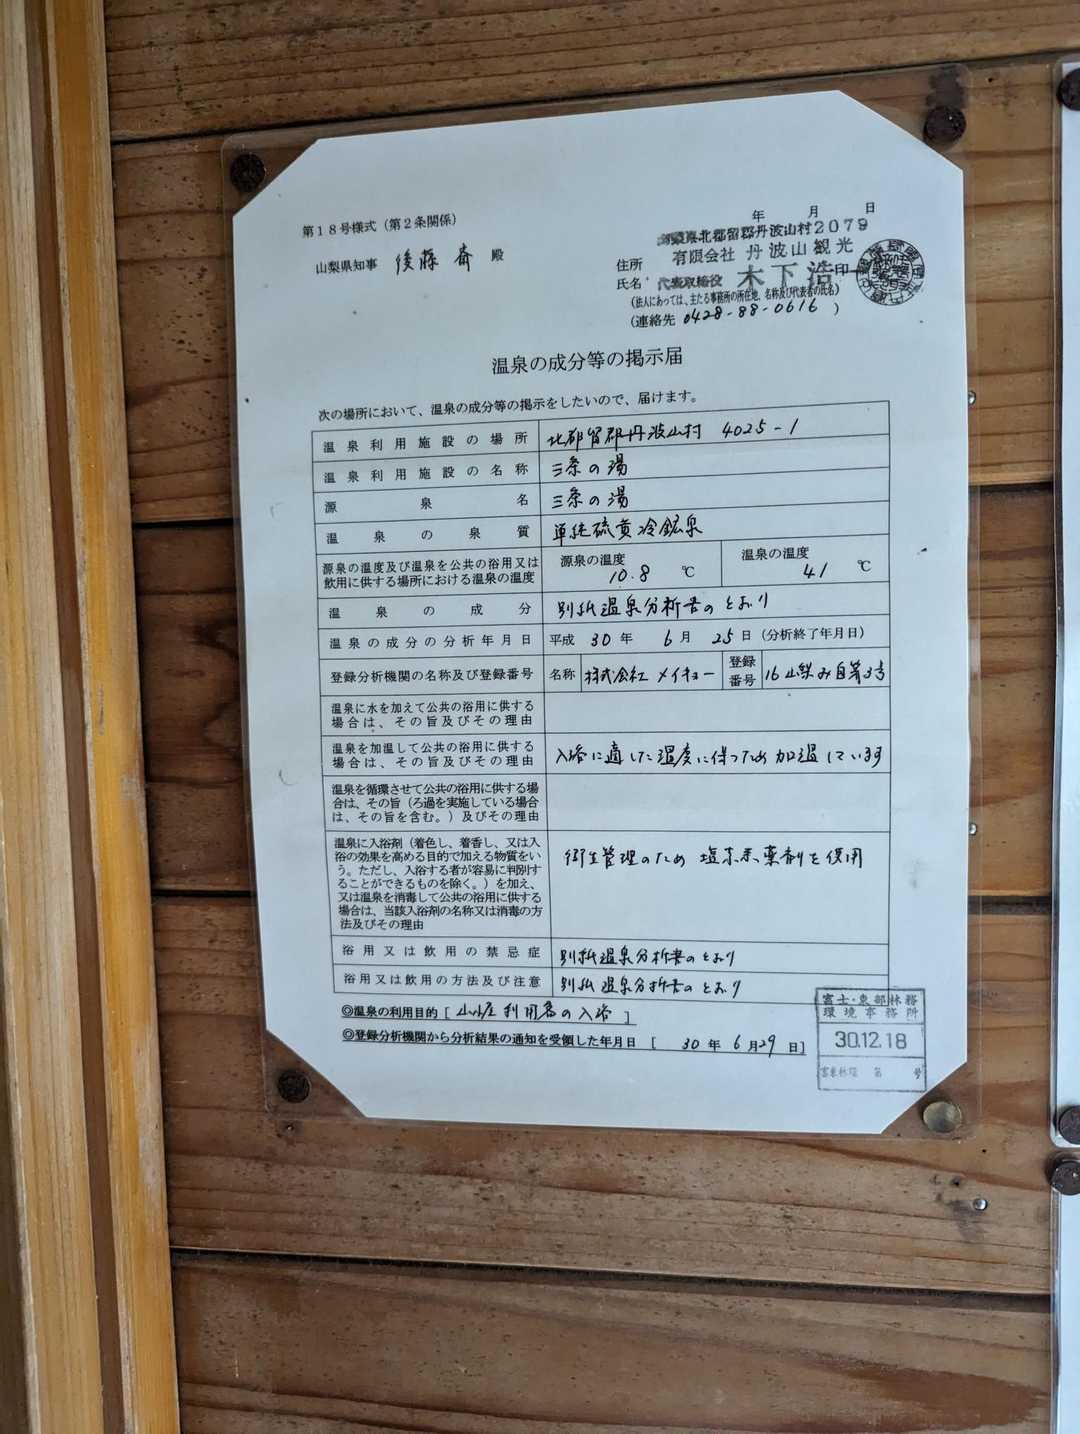 第18号様式（第2条関係）
年　月　日
山梨県知事 後藤 斎 殿
住所 北都留郡丹波山村2079
有限会社 丹波山観光
氏名 代表取締役 木下浩一 印
（法人にあっては、主たる事務所の所在地、名称及び代表者の氏名）
（連絡先 0428-88-0616 ）
温泉の成分等の掲示届
次の場所において、温泉の成分等の掲示をしたいので、届けます。
温泉利用施設の場所 北都留郡丹波山村 4025-1
温泉利用施設の名称 三条の湯
源泉名 三条の湯
温泉の泉質 単純硫黄冷鉱泉
源泉の温度及び温泉を公共の浴用又は
飲用に供する場所における温泉の温度
源泉の温度 10.8 ℃
温泉の温度 41 ℃
温泉の成分 別紙温泉分析書のとおり
温泉の成分の分析年月日 平成 30年 6月 25日（分析終了年月日）
登録分析機関の名称及び登録番号 名称 株式会社 メイキョー 登録番号 16山梨み自第3号
温泉に水を加えて公共の浴用に供する
場合は、その旨及びその理由
温泉を加温して公共の浴用に供する
場合は、その旨及びその理由
入浴に適した温度に保つため加温しています
温泉を循環させて公共の浴用に供する場
合は、その旨（ろ過を実施している場合
は、その旨を含む。）及びその理由
温泉に入浴剤（着色し、着香し、又は入
浴の効果を高める目的で加える物質をい
う。ただし、入浴する者が容易に判別す
ることができるものを除く。）を加え、
又は温泉を消毒して公共の浴用に供する
場合は、当該入浴剤の名称又は消毒の方
法及びその理由
衛生管理のため 塩素系薬剤を使用
浴用又は飲用の禁忌症 別紙温泉分析書のとおり
浴用又は飲用の方法及び注意 別紙温泉分析書のとおり
◎温泉の利用目的［ 山小屋利用者の入浴 ］
◎登録分析機関から分析結果の通知を受領した年月日 ［ 30年 6月29日］
富士・東部林務
環境事務所
30.12.18
富東林環 第 号